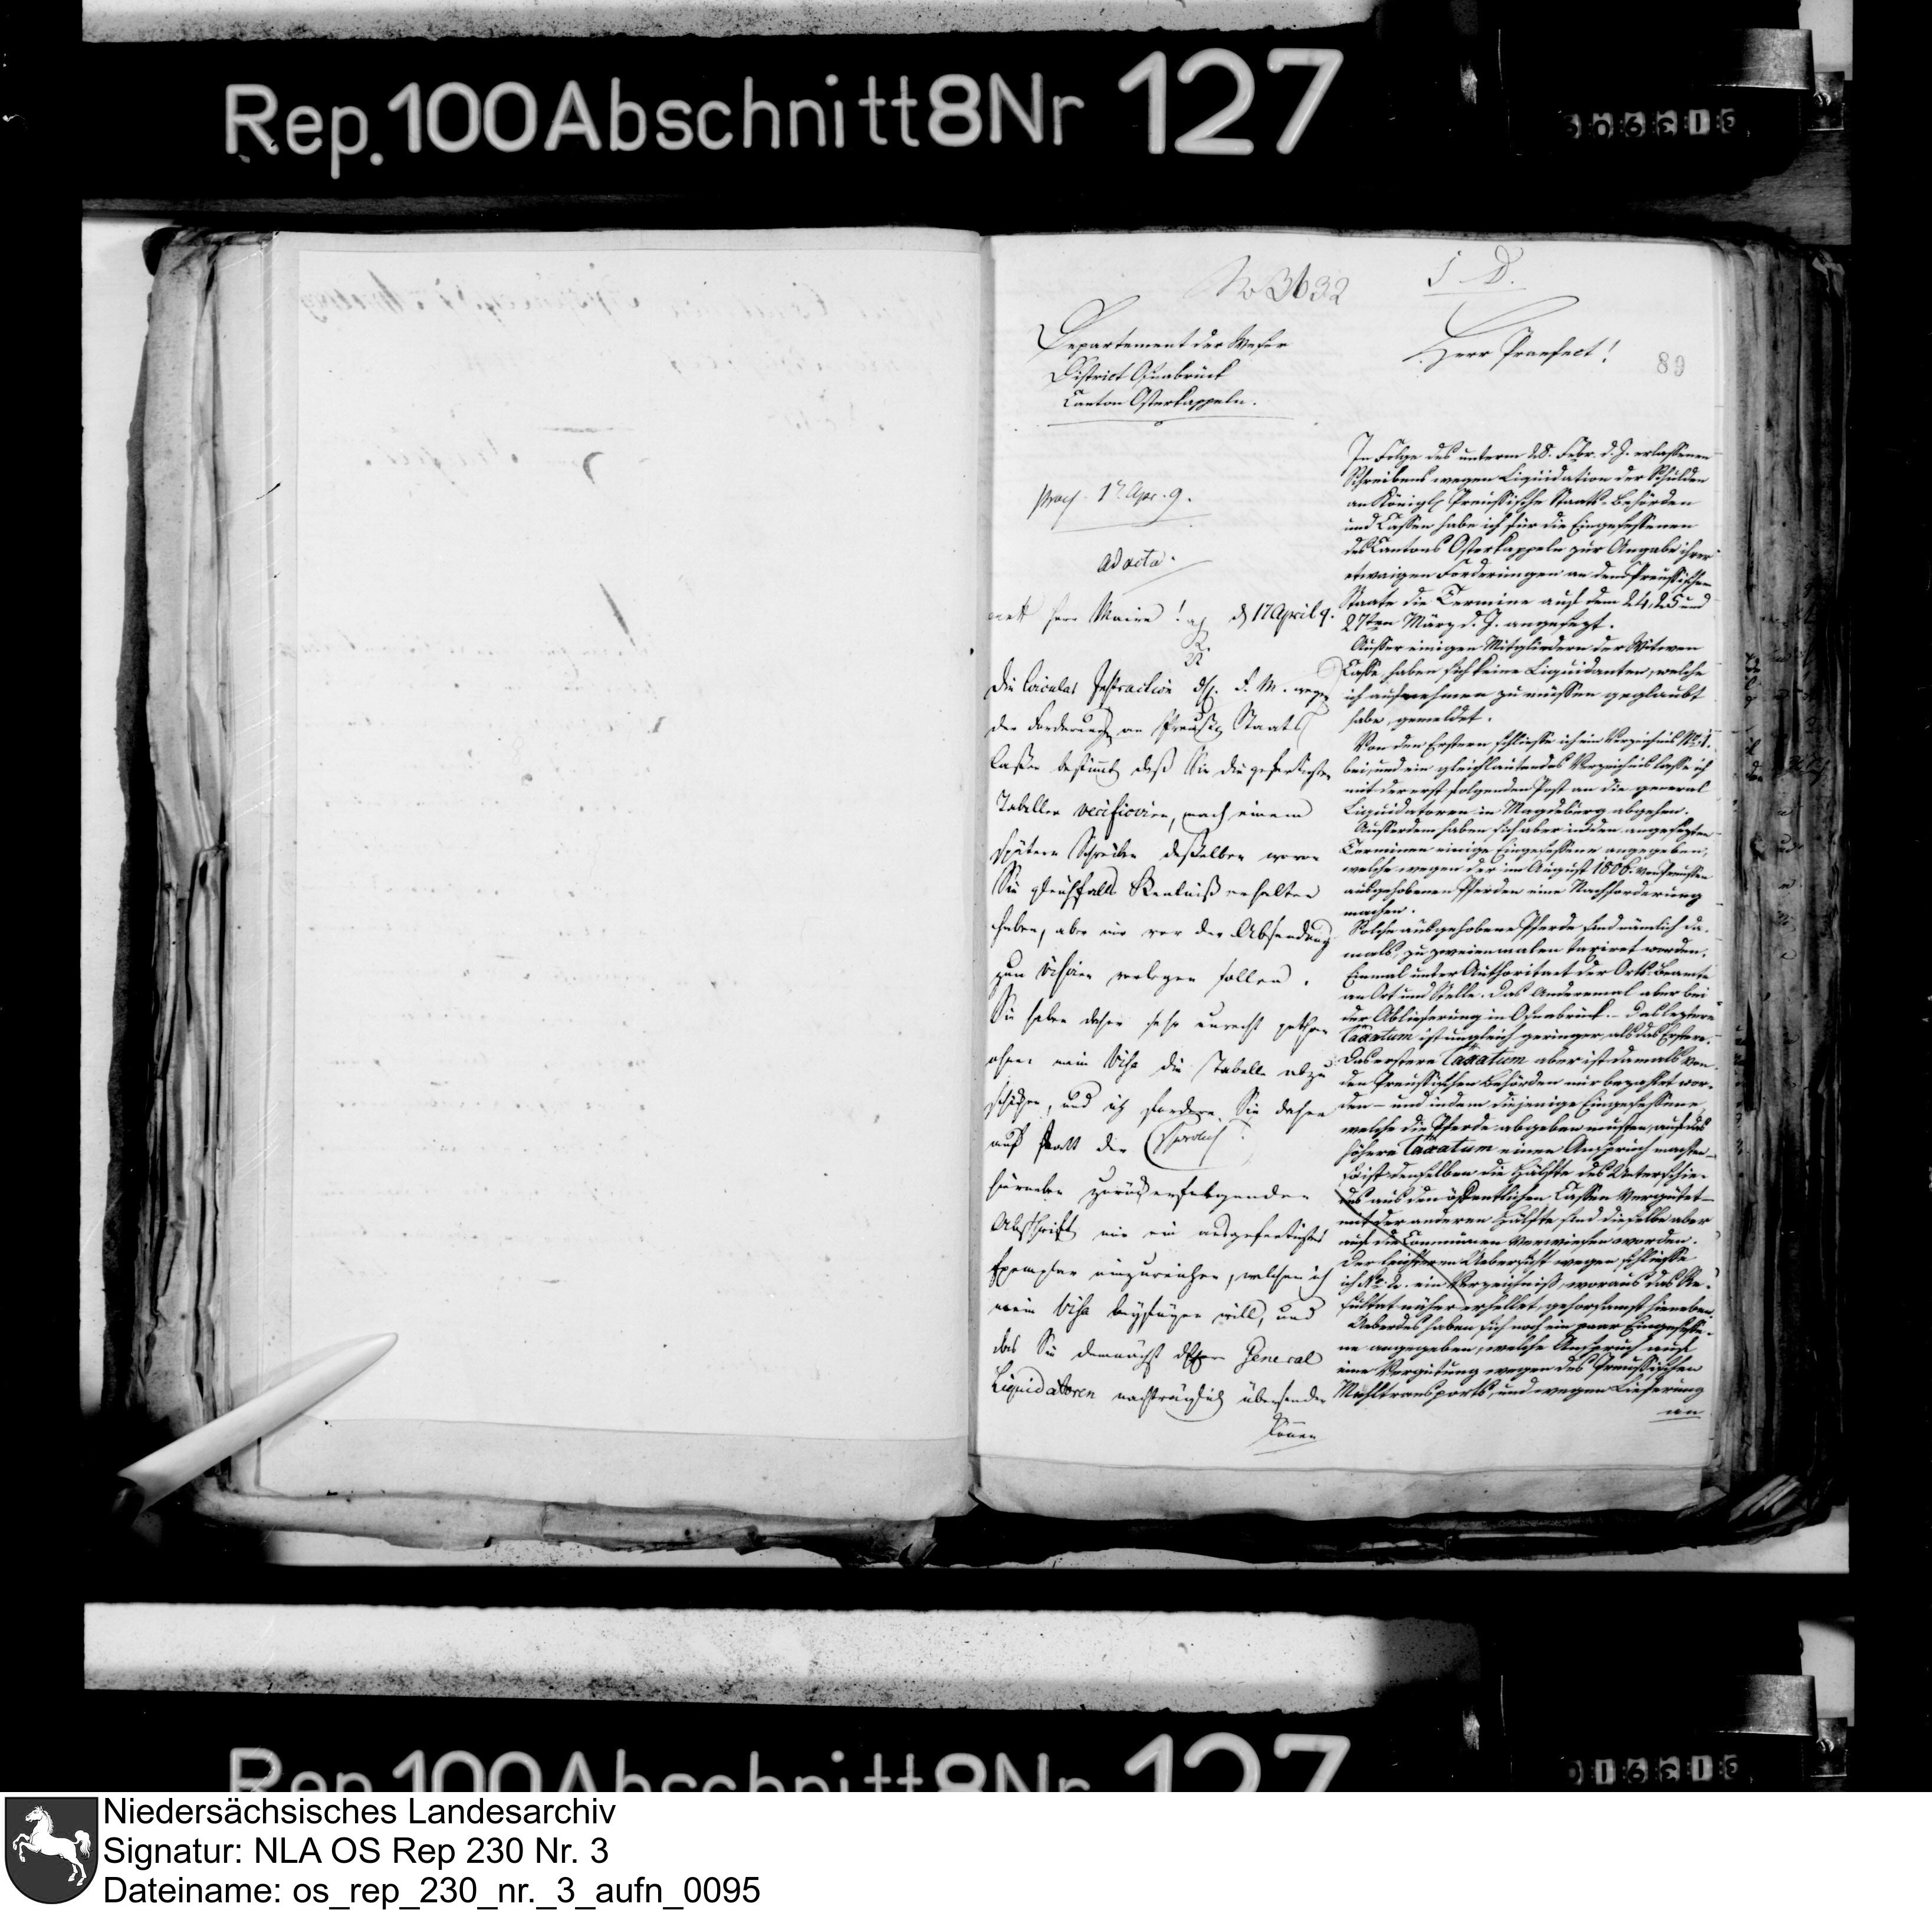 Rep. 100 Abschnitt 8 Nr 127
No 3632
Departement der Weser
District Osnabrück
Canton Osterkappeln.
Herr Praefect!
89
praes. 17 Apr. 9.
ad acta.
Herr Maire! d 17 April 9.
Die Circular Instruction
der Forderung an Preuß. Staats
Cassen bestimmt daß Sie die gefertigten
Tabellen verificiren, nach einem
spätern Schreiben desselben wovon
Sie gleichfalls Kentniß erhalten
haben, aber mir vor der Absendung
zum visiren vorlegen sollen.
Sie haben daher sehr unrecht gethan
ohne mein Visa die Tabelle abzu
schicken, und ich fordere Sie daher
auf statt der
hierneben zurückerfolgenden
Abschrift mir ein ausgefertigtes
Exemplar einzureichen, welchem ich
mein Visa beyfügen will, und
das Sie demnächst General
Liquidatoren nachträglich übersenden
können
In Folge des unterm 28. Febr. d. J. erlassenen
Schreibens wegen Liquidation der Schulden
an Königl. Preussische Staats-Behörden
und Cassen habe ich für die Eingesessenen
des Cantons Osterkappeln zur Angabe ihrer
etwaigen Forderungen an dem Preussischen
Staate die Termine auf dem 24, 25 und
27ten März d. J. angesezt.
Ausser einigen Mitgliedern der Witwen
Casse, haben sich keine Liquidanten, welche
ich aufnehmen zu müssen geglaubt
habe, gemeldet.
Von den Erstern schliesse ich ein Verzeichnis No. 1.
bei, und ein gleichlautendes Verzeichnis lasse ich
mit der erst folgenden Post an die general
Liquidatoren in Magdeburg abgehen.
Ausserdem haben sich aber in den angesezten
Terminen einige Eingesessene angegeben,
welche wegen der im August 1806. von Preussen
ausgehobenen Pferden eine Nachforderung
machen.
Solche ausgehobene Pferde sind nämlich da-
mals, zu zweienmalen taxiret worden.
Einmal unter Authoritaet der Orts-Beamte
an Ort und Stelle. Das Anderemal aber bei
der Ablieferung in Osnabrück. Das leztere
Taxatum ist ungleich geringer, als das Erstere.
Das erstere Taxatum aber ist damals von
den Preussischen Behörden nur bezahlt wor-
den – und indem diejenige Eingesessene
welche die Pferde abgeben musten, auf das
höhere Taxatum einen Anspruch machten –
so ist denselben die Hälfte des Unterschie-
des aus den öffentlichen Cassen vergütet –
mit der anderen Hälfte sind dieselbe aber
auf die Communen verwiesen worden.
Der leichteren Uebersicht wegen schliesse
ich No. 2. ein Verzeichniß, woraus das Re-
sultat näher erhellet, gehorsamst hieneben.
Ueberdes haben sich noch ein paar Eingesesse-
ne angegeben, welche Anspruch auf
eine Vergütung wegen des Preussischen
Mehltransports, und wegen Lieferung
an
Rep. 100 Abschnitt 8 Nr 127
Niedersächsisches Landesarchiv
Signatur: NLA OS Rep 230 Nr. 3
Dateiname: os_rep_230_nr._3_aufn_0095